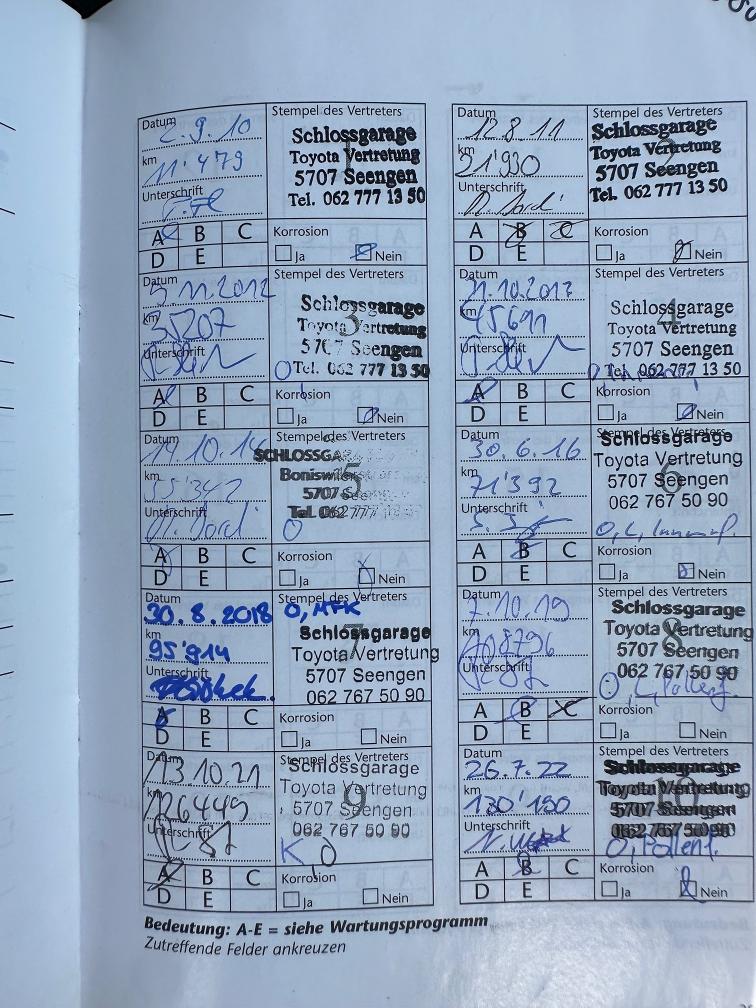 Datum 2.9.10
Stempel des Vertreters
km 11'479
Schlossgarage
Toyota Vertretung
5707 Seengen
Tel. 062 777 13 50
Unterschrift
1
A B C
D E
Korrosion
Ja Nein
Datum 12.8.11
Stempel des Vertreters
km 21'930
Schlossgarage
Toyota Vertretung
5707 Seengen
Tel. 062 777 13 50
Unterschrift
A B C
D E
Korrosion
Ja Nein
Datum 5.11.2012
Stempel des Vertreters
km 35207
Schlossgarage
Toyota Vertretung
5707 Seengen
O Tel. 062 777 13 50
Unterschrift
3
A B C
D E
Korrosion
Ja Nein
Datum 21.10.2013
Stempel des Vertreters
km 45691
Schlossgarage
Toyota Vertretung
5707 Seengen
Tel. 062 777 13 50
Unterschrift
4
A B C
D E
Korrosion
Ja Nein
Datum 14.10.14
Stempel des Vertreters
km
SCHLOSSGA
Boniswilerstrasse
5707 See
Tel. 062 777
Unterschrift
O
5
A B C
D E
Korrosion
Ja Nein
Datum 30.6.16
Stempel des Vertreters
km 71'392
Schlossgarage
Toyota Vertretung
5707 Seengen
062 767 50 90
Unterschrift
6
A B C
D E
Korrosion
Ja Nein
Datum 30.8.2018
Stempel des Vertreters
O, MFK
km 95'914
Schlossgarage
Toyota Vertretung
5707 Seengen
062 767 50 90
Unterschrift
7
A B C
D E
Korrosion
Ja Nein
Datum 7.10.19
Stempel des Vertreters
km 108796
Schlossgarage
Toyota Vertretung
5707 Seengen
062 767 50 90
Unterschrift
8
A B C
D E
Korrosion
Ja Nein
Datum 13.10.21
Stempel des Vertreters
km 126449
Schlossgarage
Toyota Vertretung
5707 Seengen
062 767 50 90
Unterschrift
K O
9
A B C
D E
Korrosion
Ja Nein
Datum 26.7.22
Stempel des Vertreters
km 130'150
Schlossgarage
Toyota Vertretung
5707 Seengen
062 767 50 90
Unterschrift
O, Pollenf.
10
A B C
D E
Korrosion
Ja Nein
Bedeutung: A-E = siehe Wartungsprogramm
Zutreffende Felder ankreuzen